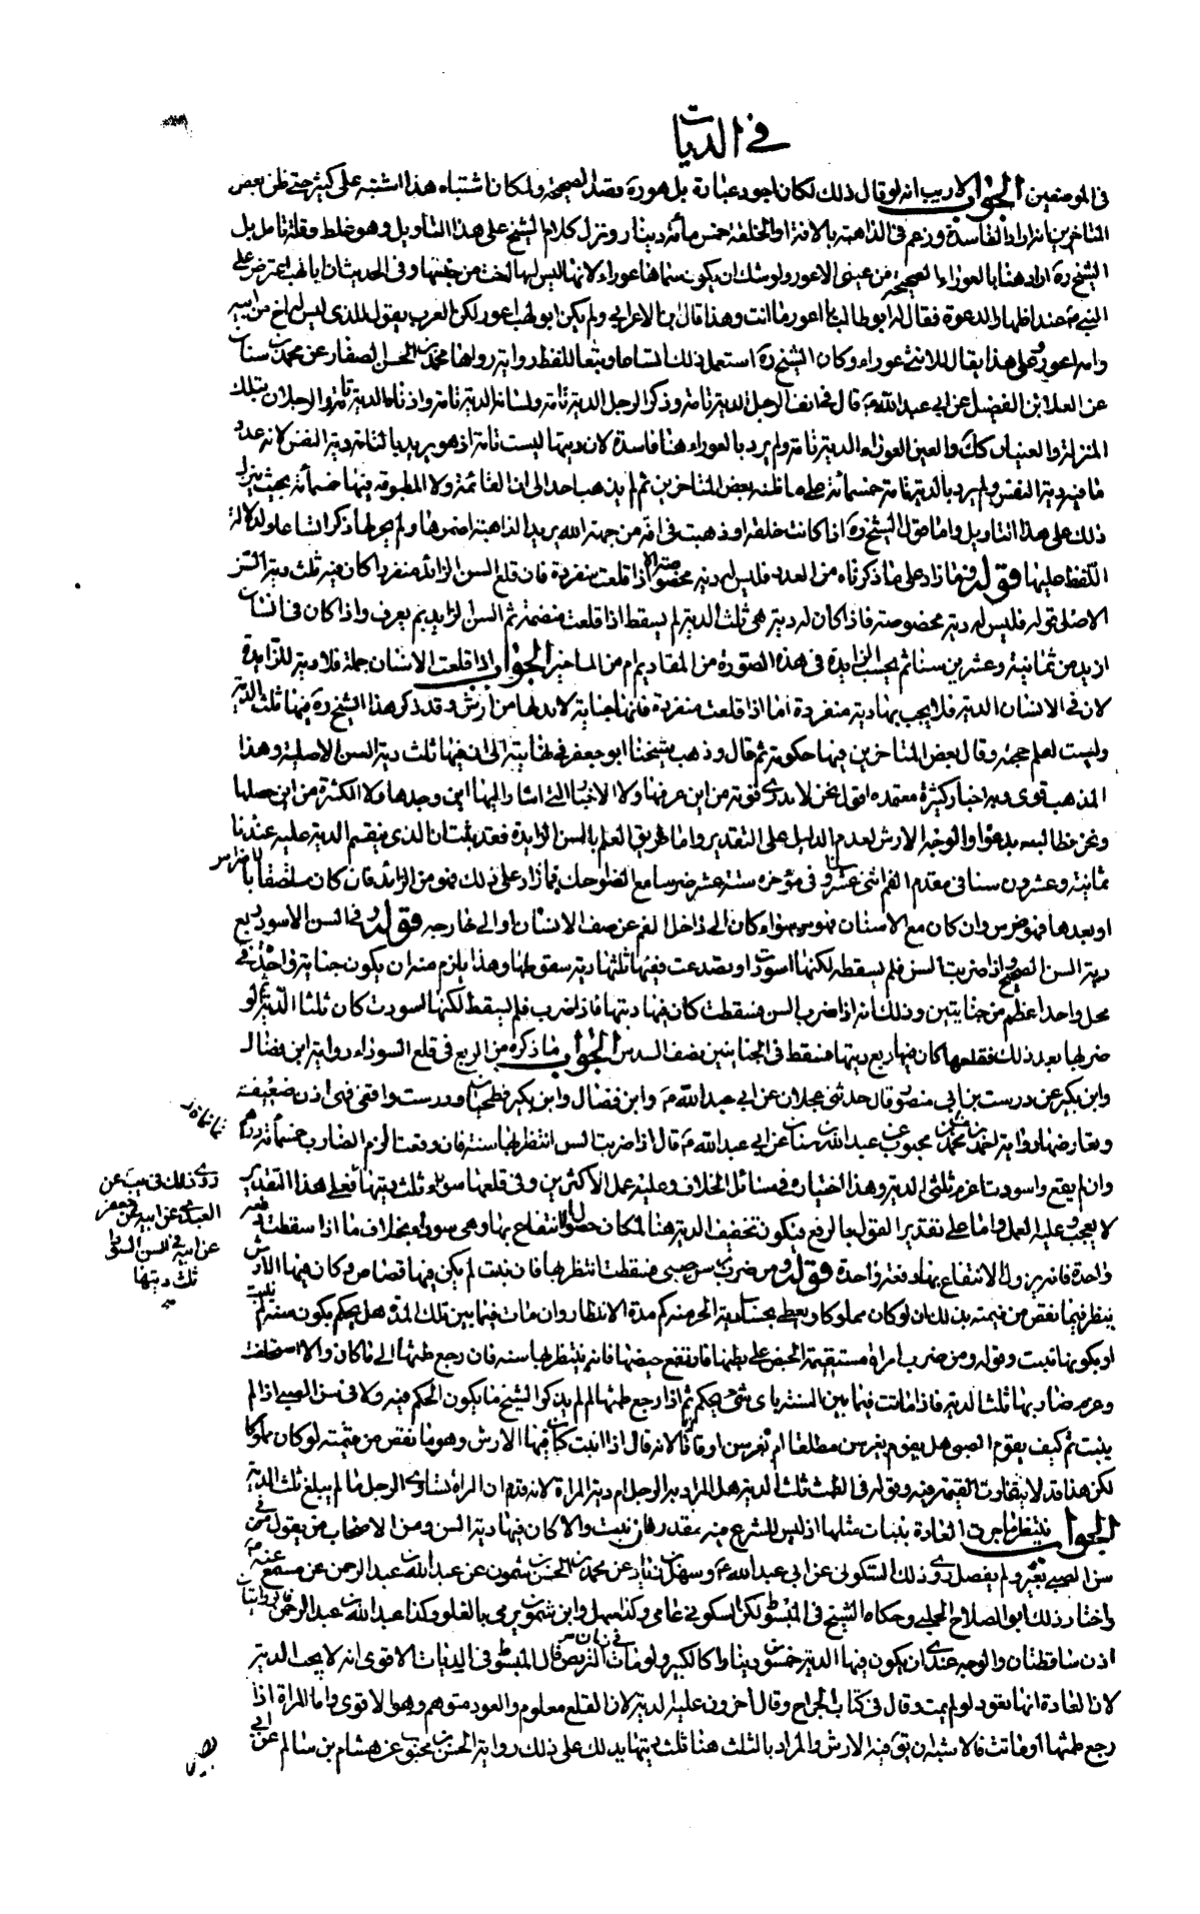 في الديات
في الموضعين الجواب لا ريب انه لو قال ذلك لكان اجود عبارة بل هو ره قصد الصحيحة ولمكان اشتباه هذا اشتبه على كثير حتى ظن بعض
المتاخرين انه اراد الفاسدة وزعم في الذاهبة بالافة او الخلقة خمس مأة دينار ونزل كلام الشيخ على هذا التاويل وهو غلط وقلة تامل بل
الشيخ ره اراد هنا بالعوراء الصحيحة من عيني الاعور ولو شك ان يكون سماها عوراء لانها ليس لها اخت من جنسها وفي الحديث ان ابا لهب اعترض على
النبي ص عند اظهار الدعوة فقال له ابو طالب يا اعور ما انت وهذا قال ابن الاعرابي ولم يكن ابو لهب اعور لكن العرب يقول للذي ليس له اخ من ابيه
وامه اعور وعلى هذا يقال للانثى عوراء وكان الشيخ ره استعمل ذلك اتساعا وتبعا للفظ رواية رواها محمد بن الحسن الصفار عن محمد بن سنان
عن العلا بن الفضيل عن ابي عبد الله ع قال في انف الرجل الدية تامة وذكر الرجل الدية تامة ولسانه الدية تامة واذناه الدية تامة والرجلان بتلك
المنزلة والعينان كك والعين العوراء الدية تامة ولم يرد بالعوراء هنا فاسدة لان ديتها ليست تامة اذ هو يريد بالتامة دية النفس لانه عدد
ما فيه دية النفس ولم يرد بالدية تامة خمسمائة على ما ظنه بعض المتاخرين ثم لم يذهب احد الى ان القائمة ولا المطبوقة فيها خمسمأة بحيث ينزل
ذلك على هذا التاويل واما قول الشيخ ره اذا كانت خلقة او ذهبت في افة من جهة الله يريد الذاهبة اضمرها ولم يجر لها ذكر اتساعا ولدلالة
اللفظ عليها قوله فما زاد على ما ذكرناه من العدد فليس له دية مخصوصة الا اذا قلعت منفردة فان قلع السن الزائد منفردا كان فيه ثلث دية السن
الاصلي قوله فليس له دية مخصوصة فاذا كان له دية هي ثلث الدية لم يسقط اذا قلعت منضمة ثم السن الزايد بم يعرف واذا كان في انسان
ازيد من ثمانية وعشرين سنا ثم يحسب الزايدة في هذه الصورة من المقاديم ام من الماخير الجواب اذا قلعت الاسنان جملة فلا دية للزايدة
لان في الاسنان الدية فلا يجب بها دية منفردة اما اذا قلعت منفردة فانها جناية لا بد لها من ارش وقد ذكر هذا الشيخ ره فيها ثلث الدية
وليست لعلم حجته وقال بعض المتاخرين فيها حكومة ثم قال وذهب شيخنا ابو جعفر في نهايته الى ان فيها ثلث دية السن الاصلية وهذا
المذهب قوي وبه اخبار كثيرة معتمدة اقول نحن لا ندري قوته من اين عرفها ولا الاخبار التي اشار اليها اين وجدها ولا الكثرة من اين حصلها
ونحن نطالبه بدعواه والوجه الارش لعدم الدليل على التقدير واما طريق العلم بالسن الزايدة فقد ثبت ان الذي ينقسم الدية عليه عندنا
ثمانية وعشرون سنا في مقدم الفم اثنى عشر وفي مؤخره ستة عشر ضرسا مع الضواحك فما زاد على ذلك فهو من الزائد فان كان ملتصقا بالاضراس
او بعدها فهو ضرس وان كان مع الاسنان فهو سن سواء كان الى داخل الفم عن صف الاسنان او الى خارجه قوله وفي السن الاسود ربع
دية السن الصحيح واذا ضربت السن فلم يسقط لكنها اسودت او تصدعت ففيها ثلثا دية سقوطها وهذا يلزم منه ان يكون جناية واحدة في
محل واحد اعظم من جنايتين وذلك انه اذا ضرب السن فسقطت كان فيها ديتها فاذا ضرب فلم يسقط لكنها اسودت كان ثلثا الدية ثم لو
ضربها بعد ذلك فقلعها كان فيها ربع ديتها فسقط في الجنايتين نصف السدس الجواب ما ذكره من الربع في قلع السوداء رواية ابن فضال
وابن بكير عن درست بن ابي منصور قال حدثني عجلان عن ابي عبد الله ع وابن فضال وابن بكير فطحيان ودرست واقفي فهي اذن ضعيفة
ويعارضها رواية احمد بن محمد عن محبوب عن عبد الله بن سنان عن ابي عبد الله ع قال اذا ضربت السن انتظر بها سنة فان وقعت لزم الضارب خمسمأة درهم
وان لم يقع واسودت اغرم ثلثي الدية وهذا اختياره في مسائل الخلاف وعليه عمل الاكثرين وفي قلعها سوداء ثلث ديتها فعلى هذا التقدير
لا يعجب وعليه العمل واما على تقدير القول بالربع فيكون تخفيف الدية هنا لمكان حصول الانتفاع بها وهي سوداء بخلاف ما اذا سقطت دفعة
واحدة فانه يزول الانتفاع بها دفعة واحدة قوله ومن ضرب سن صبي فسقطت انتظر بها فان نبتت لم يكن فيها قصاص وكان فيها الارش
ينظر فيما نقص من قيمته بذلك ان لو كان مملوكا ويعطى بحساب دية الحر منه كم مدة الانتظار وان مات فيما بين تلك المدة هل يحكم بكون سنه لم تنبت
او بكونها نبتت وقوله ومن ضرب امراة مستقيمة الحيض على بطنها فارتفع حيضها فانه ينتظر بها سنة فان رجع طمثها الى ما كان والا استحلفت
وغرم ضاربها ثلث الدية فاذا ماتت فيما بين السنة باي شيء يحكم ثم اذا رجع طمثها لم لم يذكر الشيخ ما يكون الحكم فيه ولا في سن الصبي اذا لم
ينبت ثم كيف يقوم الصبي هل يقوم بغير سن مطلقا ام بغير سن اوقاتا لانه قال اذا انبت كان فيها الارش وهو ما نقص من قيمته لو كان مملوكا
لكن هذا قد لا يتفاوت القيمة فيه وقوله في الطمث ثلث الدية هل المراد دية الرجل ام دية المراة لانه قدم ان المراة تساوي الرجل ما لم يبلغ ثلث الدية
الجواب ينتظر ما جرت العادة بنبات مثلها اذ ليس للشرع فيه مقدر فان نبت والا كان فيها دية السن ومن الاصحاب من يقول في
سن الصبي بعير ولم يفصل روى ذلك السكوني عن ابي عبد الله ع وسهل بن زياد عن محمد بن الحسن بن شمون عن عبد الله بن عبد الرحمن عن مسمع عنه ع
واختار ذلك ابو الصلاح الحلبي وحكاه الشيخ في المبسوط لكن السكوني عامي وكذا سهل وابن شمون يرمى بالغلو وكذا عبد الله بن عبد الرحمن فالروايتان
اذن ساقطتان والوجه عندي ان يكون فيها الدية خمسون دينارا كالكبير ولو مات في زمان التربص قال في المبسوط في الديات الاقوى انه لا يجب الدية
لان العادة انها تعود لو لم يمت وقال في كتاب الجراح وقال اخرون عليه الدية لان القلع معلوم والعود متوهم وهو الاقوى واما المراة اذا
رجع طمثها او ماتت فالاشبه ان يق فيه الارش والمراد بالثلث هنا ثلث ديتها يدلك على ذلك رواية الحسن بن محبوب عن هشام بن سالم عن ابي
بصير
روى ذلك في يب عن
العبدي عن ابيه عن جعفر
عن ابيه في السن السوداء
ثلث ديتها